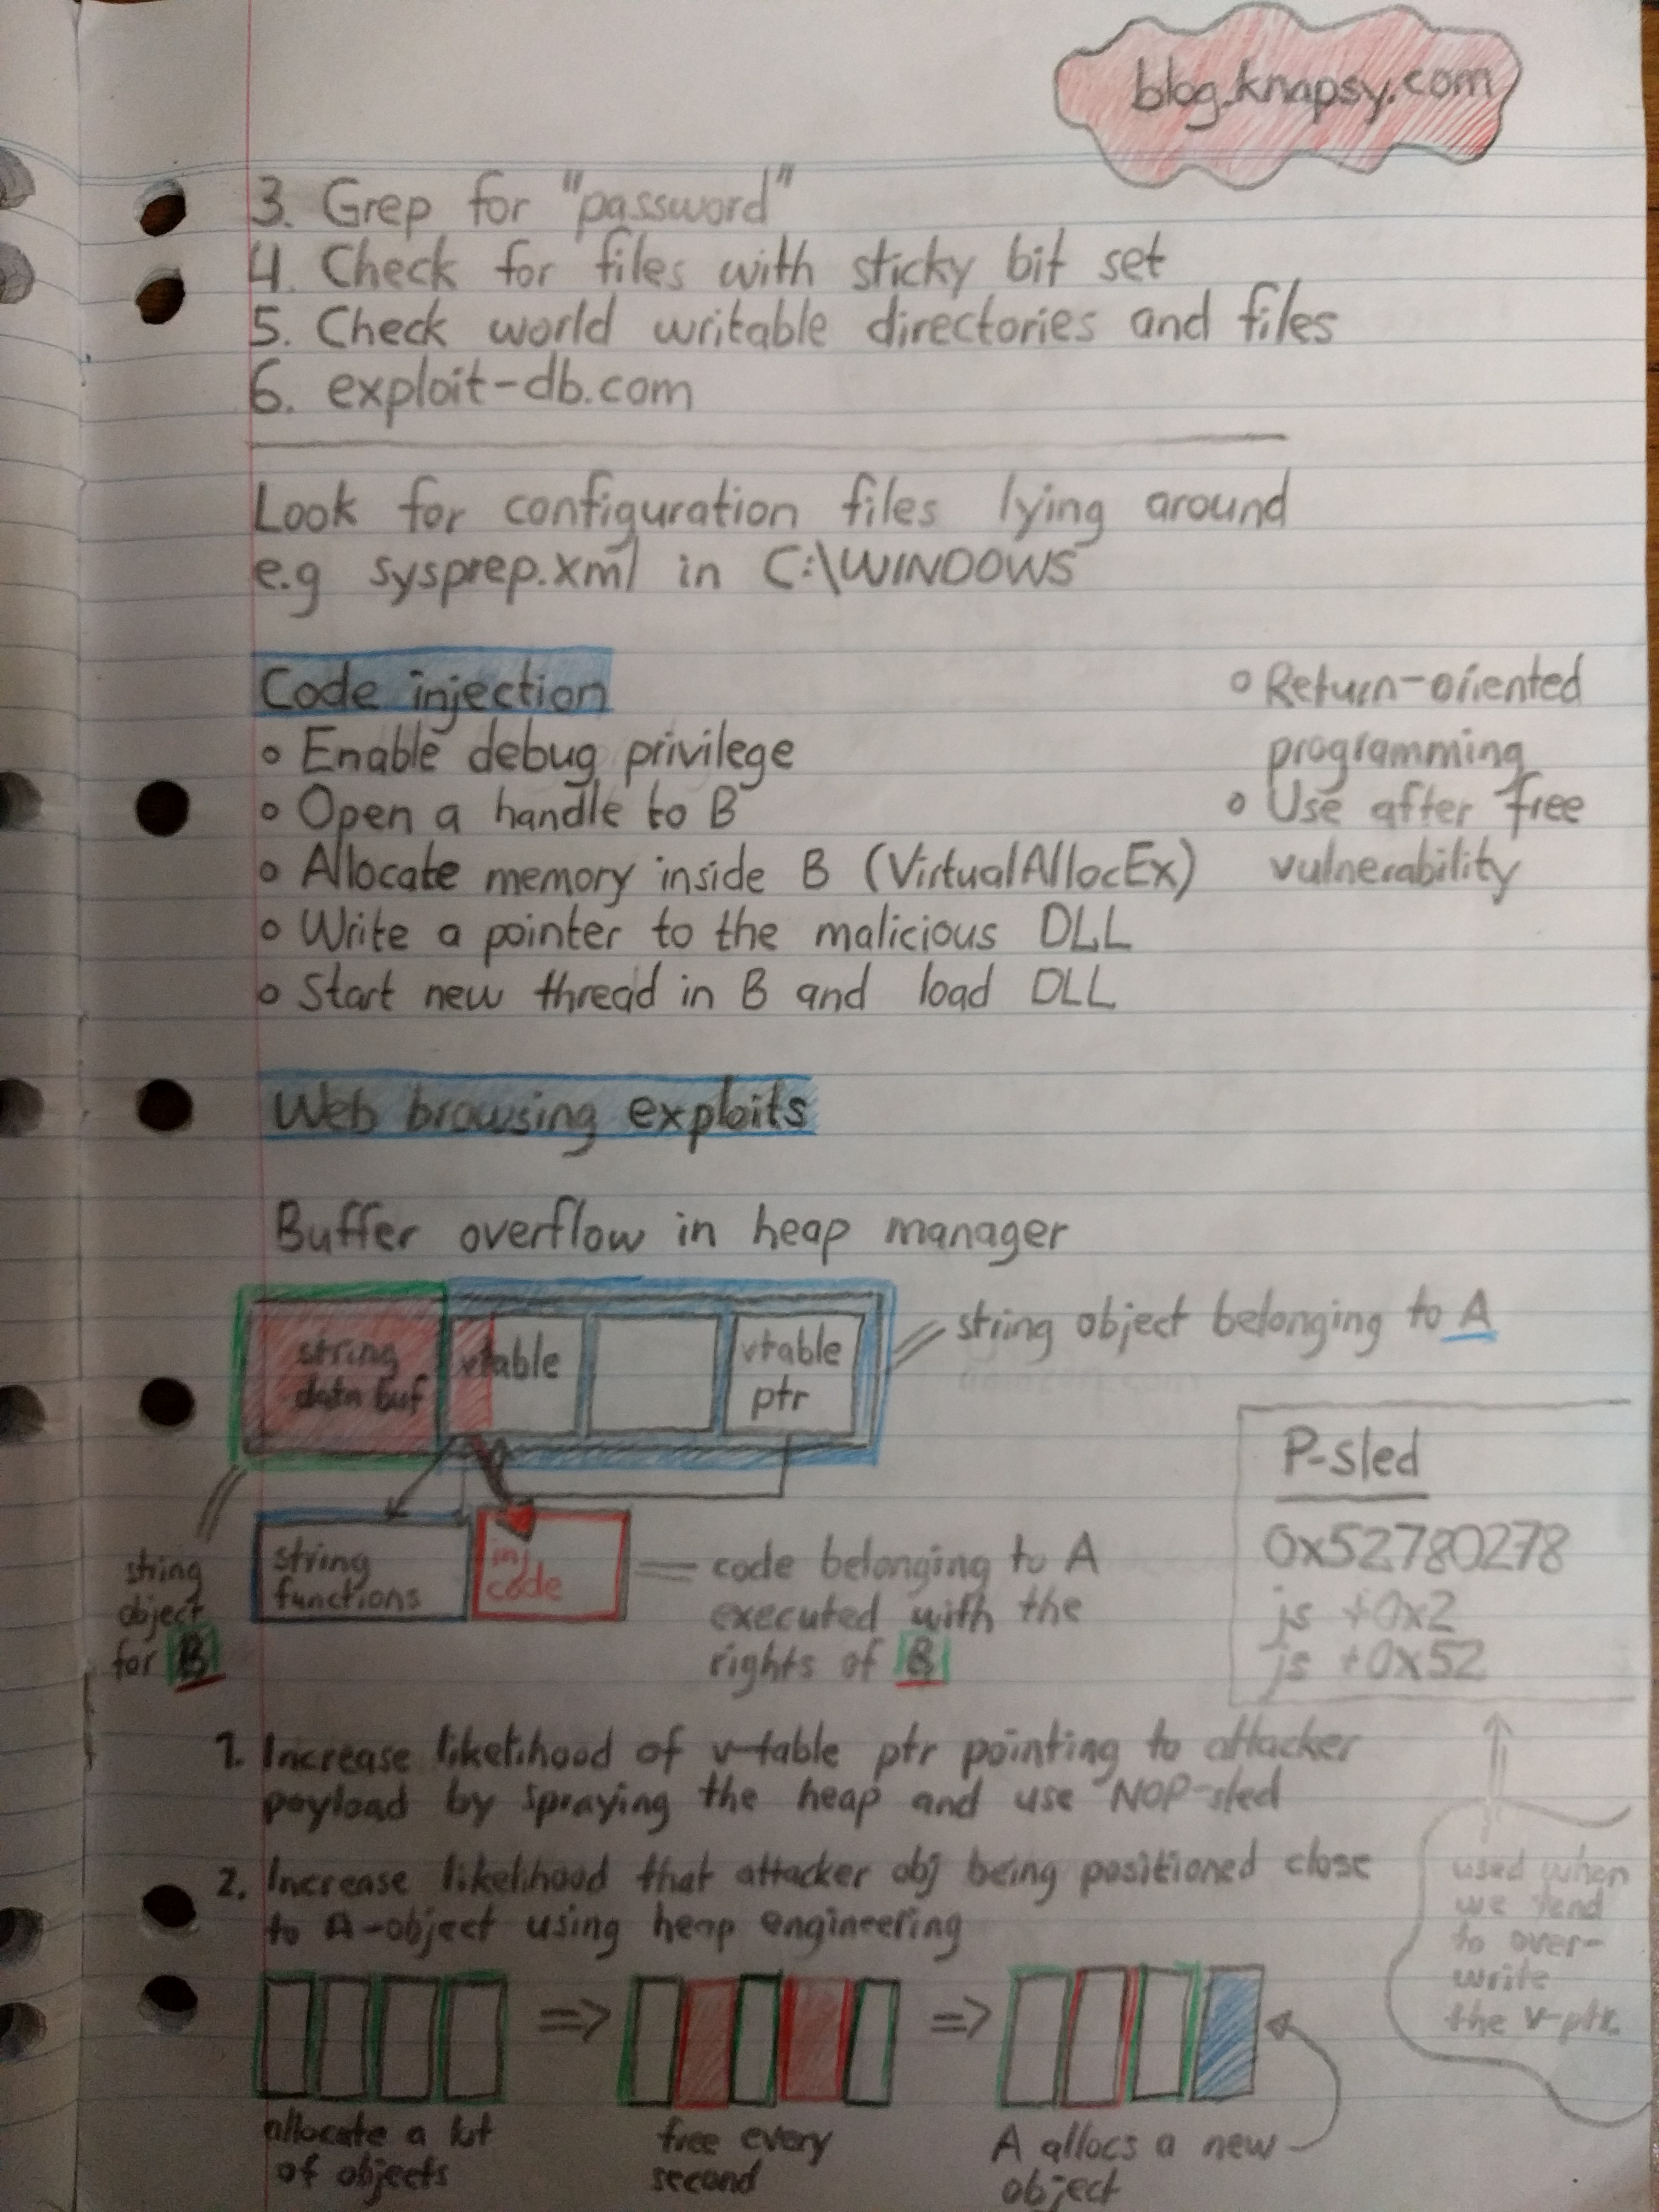 blog.knapsy.com
3. Grep for "password"
4. Check for files with sticky bit set
5. Check world writable directories and files
6. exploit-db.com
Look for configuration files lying around
e.g sysprep.xml in C:\WINDOWS
Code injection
o Enable debug privilege
o Open a handle to B
o Allocate memory inside B (VirtualAllocEx)
o Write a pointer to the malicious DLL
o Start new thread in B and load DLL
o Return-oriented
programming
o Use after free
vulnerability
Web browsing exploits
Buffer overflow in heap manager
string
data buf
vtable
vtable
ptr
string object belonging to A
string
object
for B
string
functions
inj
code
code belonging to A
executed with the
rights of B
P-sled
0x52780278
js +0x2
js +0x52
1. Increase likelihood of v-table ptr pointing to attacker
payload by spraying the heap and use NOP-sled
2. Increase likelihood that attacker obj being positioned close
to A-object using heap engineering
used when
we tend
to over-
write
the v-ptr.
allocate a lot
of objects
=>
free every
second
=>
A allocs a new
object